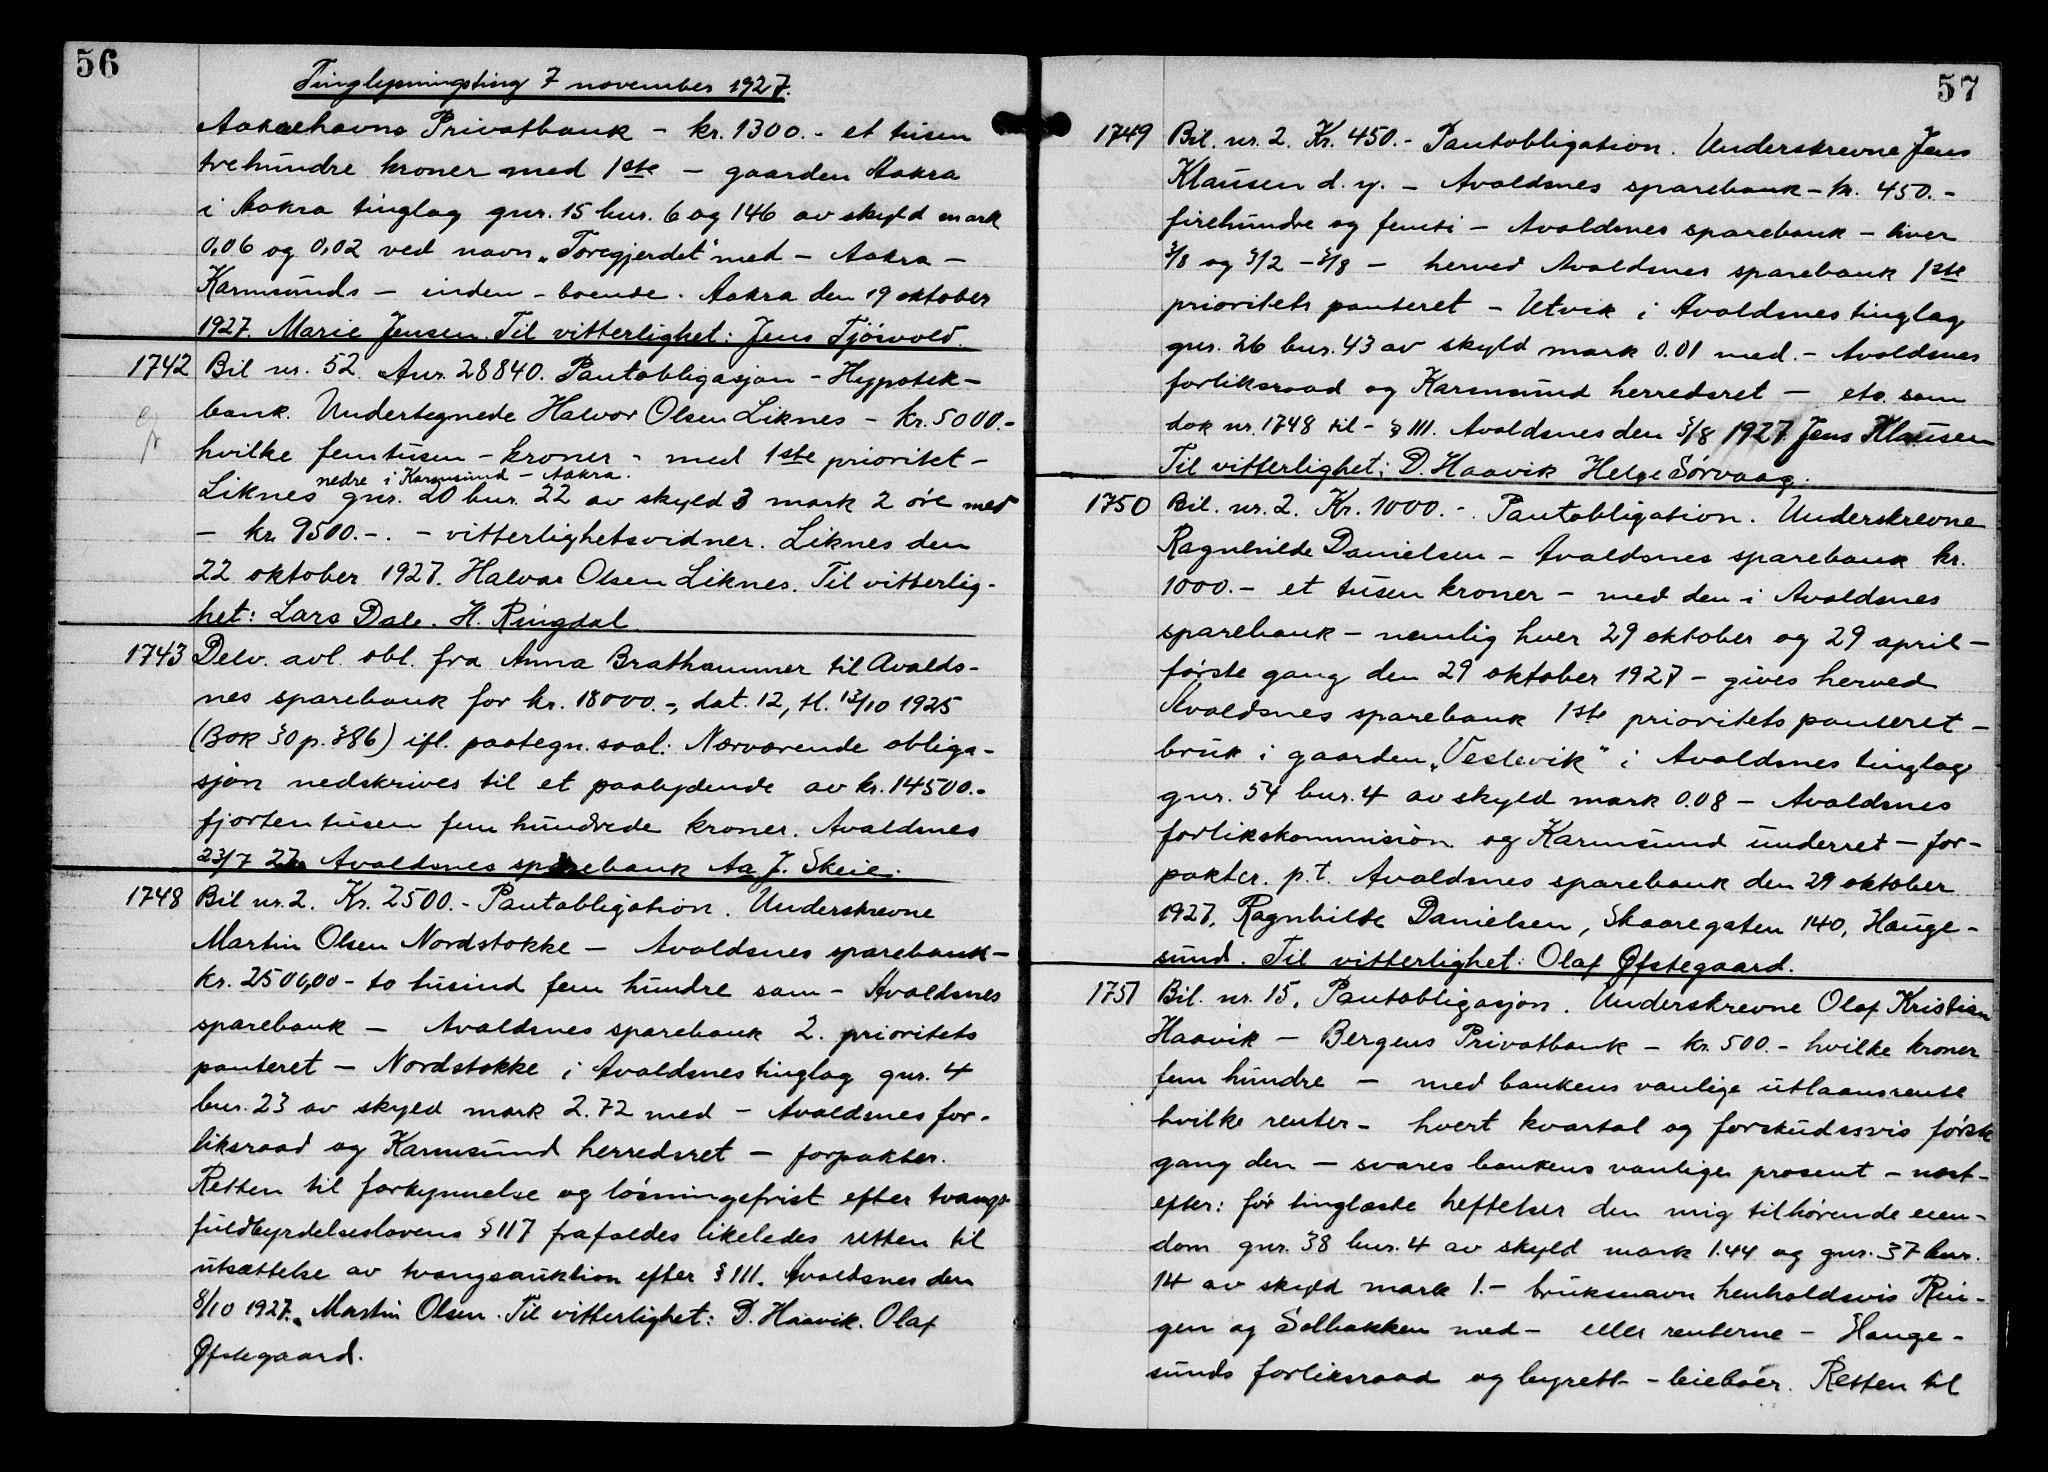 56
Tinglysningsting 7 november 1927.
Aakrehavns Privatbank - kr. 1300.- et tusen
trehundre kroner med 1ste - gaarden Aakra
i Aakra tinglag gnr. 15 bnr. 6 og 146 av skyld mark
0,06 og 0,02 ved navn "Toregjerdet" med - Aakra -
Karmsunds - inden - boende. Aakra den 19 oktober
1927. Marie Jensen. Til vitterlighet: Jens Tjösvold.
1742 Bil nr. 52. Anr. 28840. Pantobligasjon - Hypotek-
bank. Undertegnede Halvor Olsen Liknes - kr. 5000.-
hvilke femtusen - kroner - med 1ste prioritet -
nedre i Karmsund - Aakra.
Liknes gnr. 20 bnr. 22 av skyld 3 mark 2 öre med
- kr. 9500.-. - vitterlighetsvidner. Liknes den
22 oktober 1927. Halvor Olsen Liknes. Til vitterlig-
het: Lars Dale. H. Ringdal.
1743 Delv. avl. obl. fra Anna Brathammer til Avalds-
nes sparebank for kr. 18000.-, dat. 12, tl. 13/10 1925
(Bok 30 p. 386) ifl. paategn. saal: Nærværende obliga-
sjon nedskrives til et paalydende av kr. 14500.-
fjortentusen femhundrede kroner. Avaldsnes
23/7 27. Avaldsnes sparebank Aa J. Skeie.
1748 Bil nr. 2. Kr. 2500.- Pantobligation. Underskrevne
Martin Olsen Nordstokke - Avaldsnes sparebank -
kr. 2500,00 - to tusind fem hundre som - Avaldsnes
sparebank - Avaldsnes sparebank 2. prioritets
panteret - Nordstokke i Avaldsnes tinglag gnr. 4
bnr. 23 av skyld mark 2.72 med - Avaldsnes for-
liksraad og Karmsund herredsret - forpakter.
Retten til forkynnelse og lösningsfrist efter tvangs-
fuldbyrdelseslovens § 117 frafaldes likeledes retten til
utsættelse av tvangsauktion efter § 111. Avaldsnes den
8/10 1927. Martin Olsen. Til vitterlighet: D. Haavik. Olaf
Øfstegaard.
57
1749 Bil. nr. 2. Kr. 450.- Pantobligation. Underskrevne Jens
Klausen d. y. - Avaldsnes sparebank - kr. 450.-
firehundre og femti - Avaldsnes sparebank - hver
3/8 og 3/2 - 3/8 - herved Avaldsnes sparebank 1ste
prioritets panteret - Utvik i Avaldsnes tinglag
gnr. 26 bnr. 43 av skyld mark 0.01 med.- Avaldsnes
forliksraad og Karmsund herredsret - etc. som
dok nr. 1748 til - § 111. Avaldsnes den 3/8 1927. Jens Klausen
Til vitterlighet: D. Haavik Helge Sörvaag.
1750 Bil. nr. 2. Kr. 1000.-. Pantobligation. Underskrevne
Ragnhilde Danielsen - Avaldsnes sparebank kr.
1000.- et tusen kroner - med den i Avaldsnes
sparebank - nemlig hver 29 oktober og 29 april -
förste gang den 29 oktober 1927 - gives herved
Avaldsnes sparebank 1ste prioritets panteret -
bruk i gaarden "Veslevik" i Avaldsnes tinglag
gnr. 54 bnr. 4 av skyld mark 0.08 - Avaldsnes
forlikskommision og Karmsund underret - for-
pakter. p.t. Avaldsnes sparebank den 29 oktober
1927. Ragnhilde Danielsen, Skaaregaten 140, Hauge-
sund. Til vitterlighet: Olaf Øfstegaard.
1751 Bil. nr. 15. Pantobligasjon. Underskrevne Olaf Kristian
Haavik - Bergens Privatbank - kr. 500.- hvilke kroner
fem hundre - med bankens vanlige utlaansrente
hvilke renter - hvert kvartal og forskudssvis förste
gang den - svares bankens vanlige prosent - næst-
efter: för tinglæste heftelser den mig tilhörende eien-
dom gnr. 38 bnr. 4 av skyld mark 1.44 og gnr. 37 bnr.
14 av skyld mark 1.- bruksnavn henholdsvis Rin-
gen og Solbakken med - eller renterne - Hauge-
sunds forliksraad og byrett - leieboer. Retten til